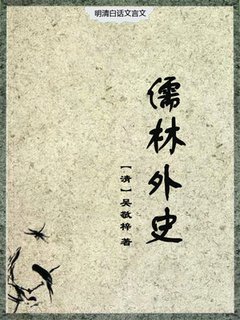 明清白话文言文
儒林外史
【清】吴敬梓 著